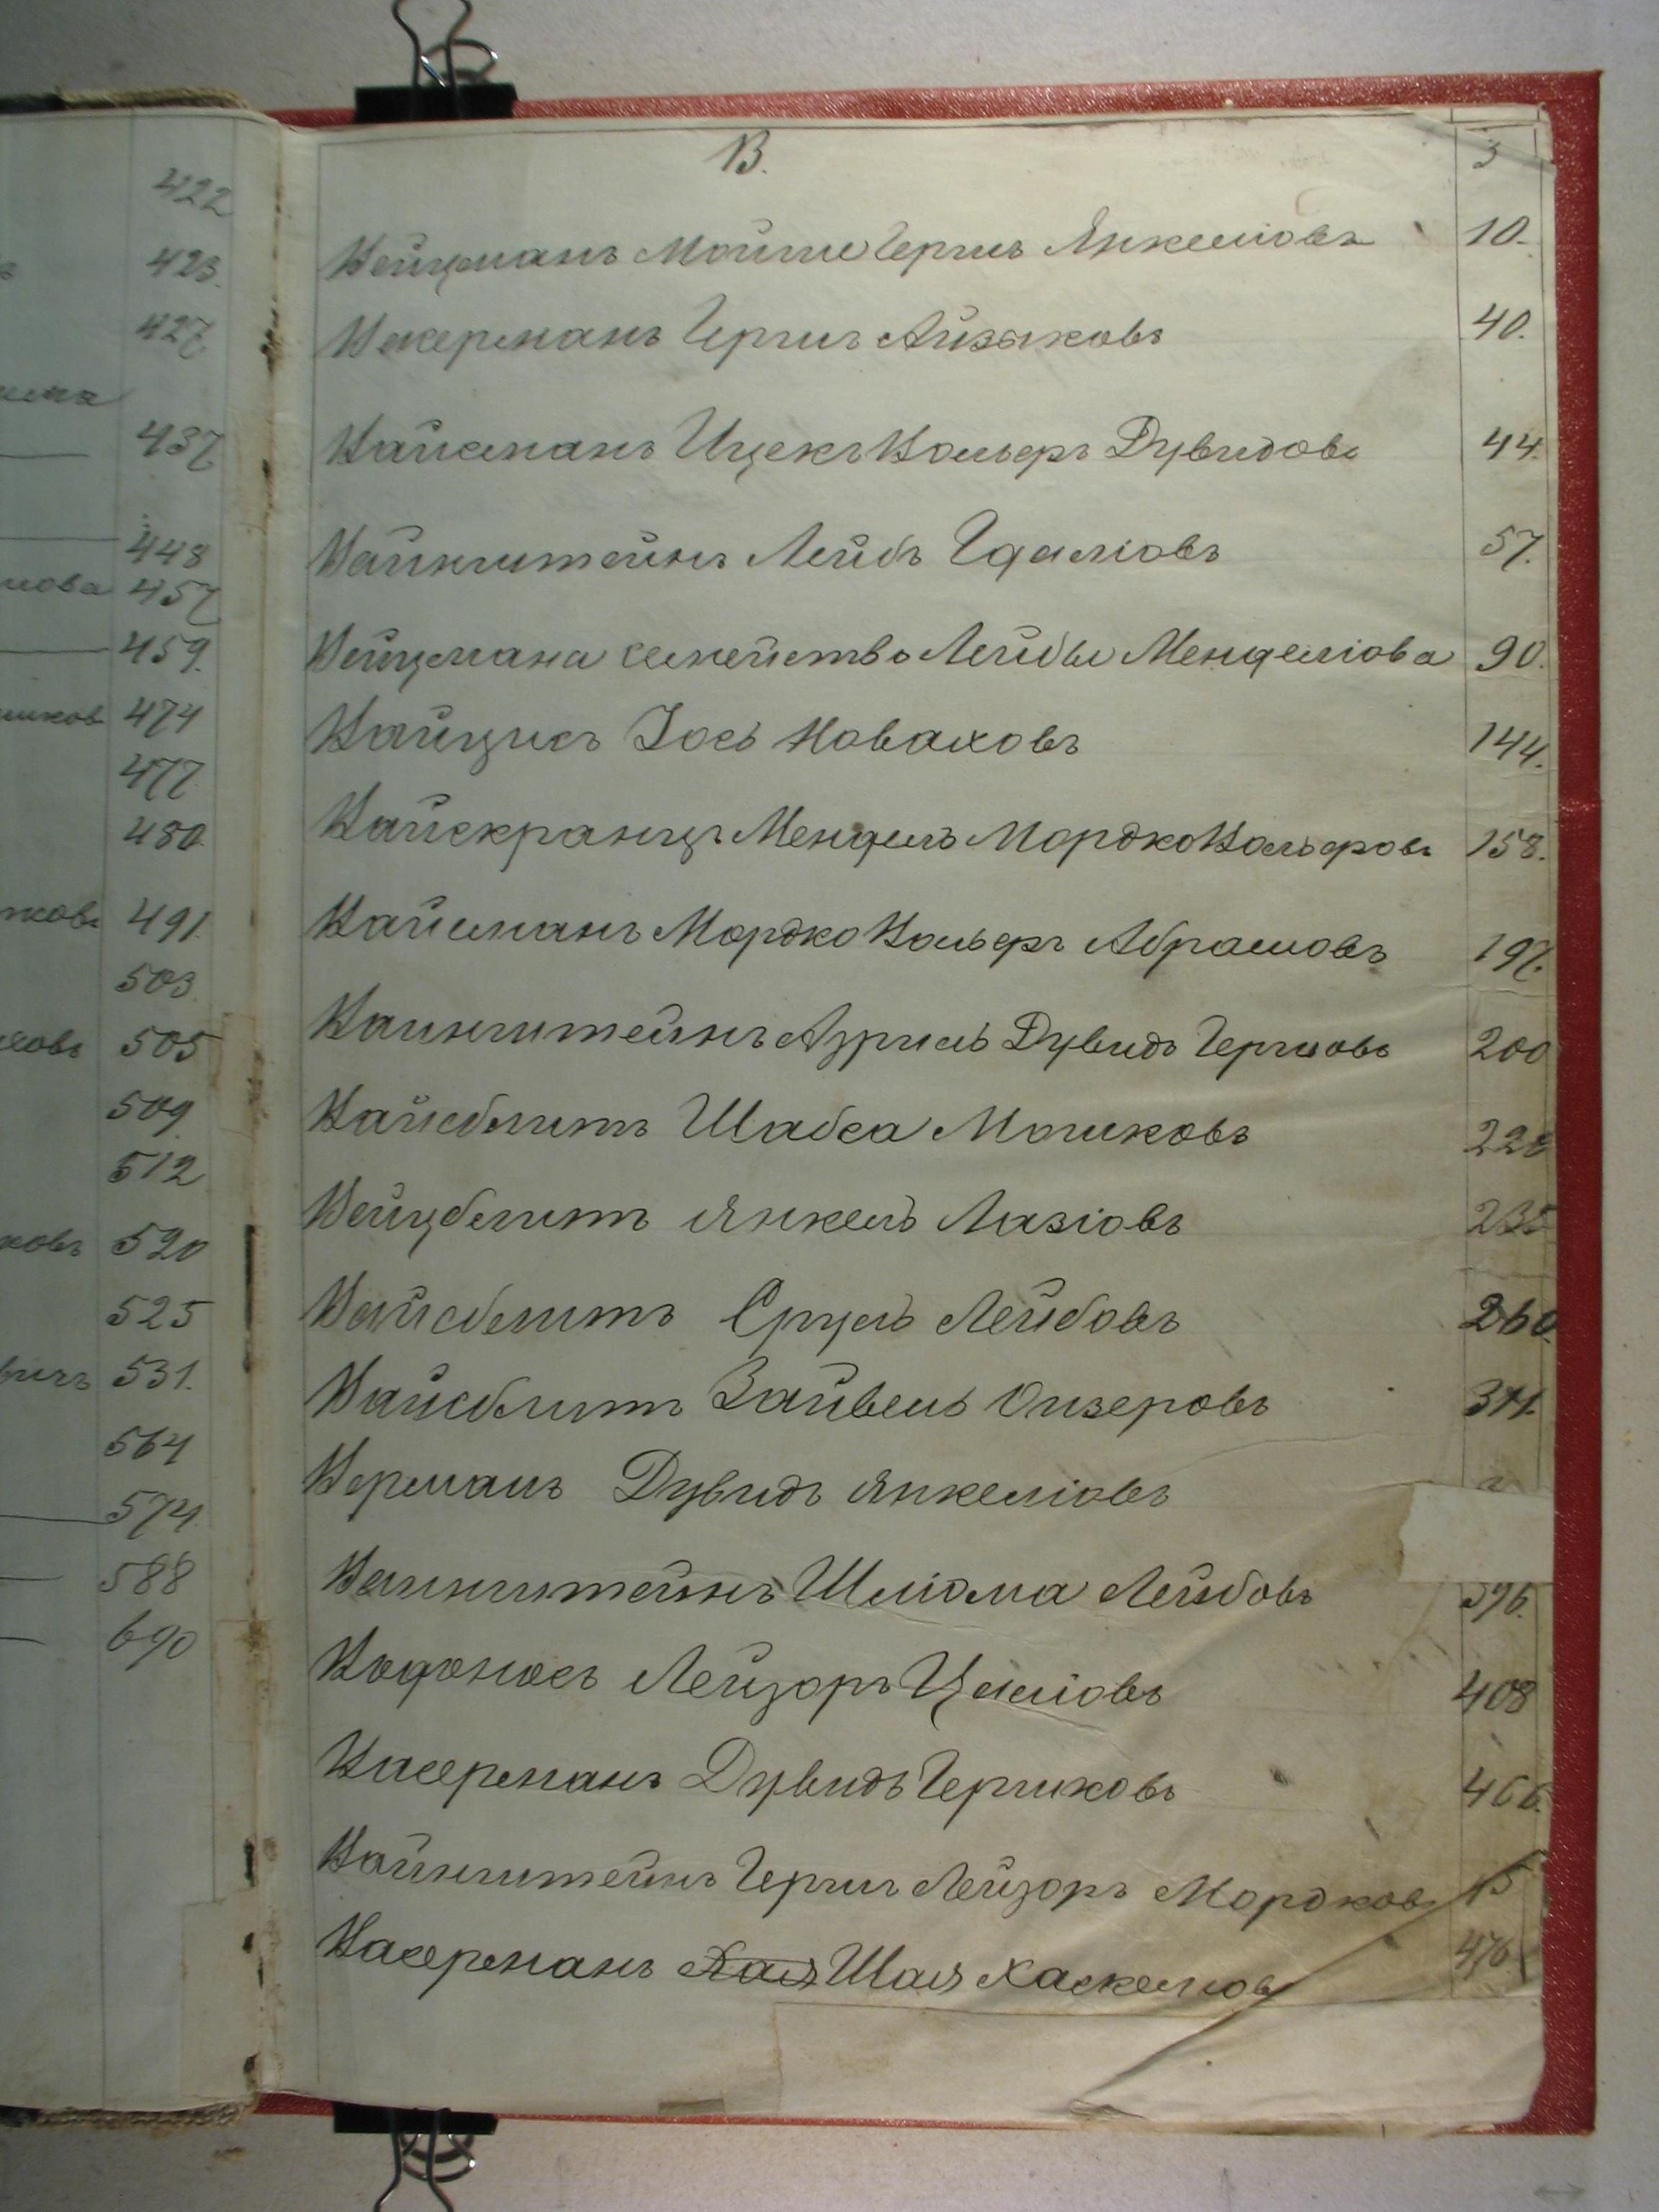 В.
3
422
423.
427
437
448
457
459.
474
477
480.
491.
503
505
509.
512
520
525
531.
564
574
588
690
Вейцманъ Мойше Гершъ Янкеліовъ 10.
Васерманъ Гершъ Айзыковъ 40.
Вайсманъ Ицекъ Вольфъ Дувидовъ 44.
Вайнштейнъ Лейбъ Гдаліовъ 57.
Вейцмана семейство Лейбы Менделіова 90.
Вайцисъ Іось Новаховъ 144.
Вайскранцъ Мендель Мордко Вольфовъ 158.
Вайсманъ Мордко Вольфъ Абрамовъ 197.
Вайнштейнъ Азриль Дувидъ Гершовъ 200
Вайсблитъ Шабса Мошковъ
Вейцблитъ Янкель Лазіовъ 235
Вайсблитъ Сруль Лейбовъ 260.
Вайсблитъ Зайвель Ойзеровъ
Верманъ Дувидъ Янкеліовъ
Вайнштейнъ Шліома Лейбовъ 396.
Водоносъ Лейзоръ Цаліовъ 408
Васерманъ Дувидъ Гершковъ 466.
Вайнштейнъ Гершъ Лейзоръ Мордковъ
Васерманъ Шая Хаскеліовъ 476.